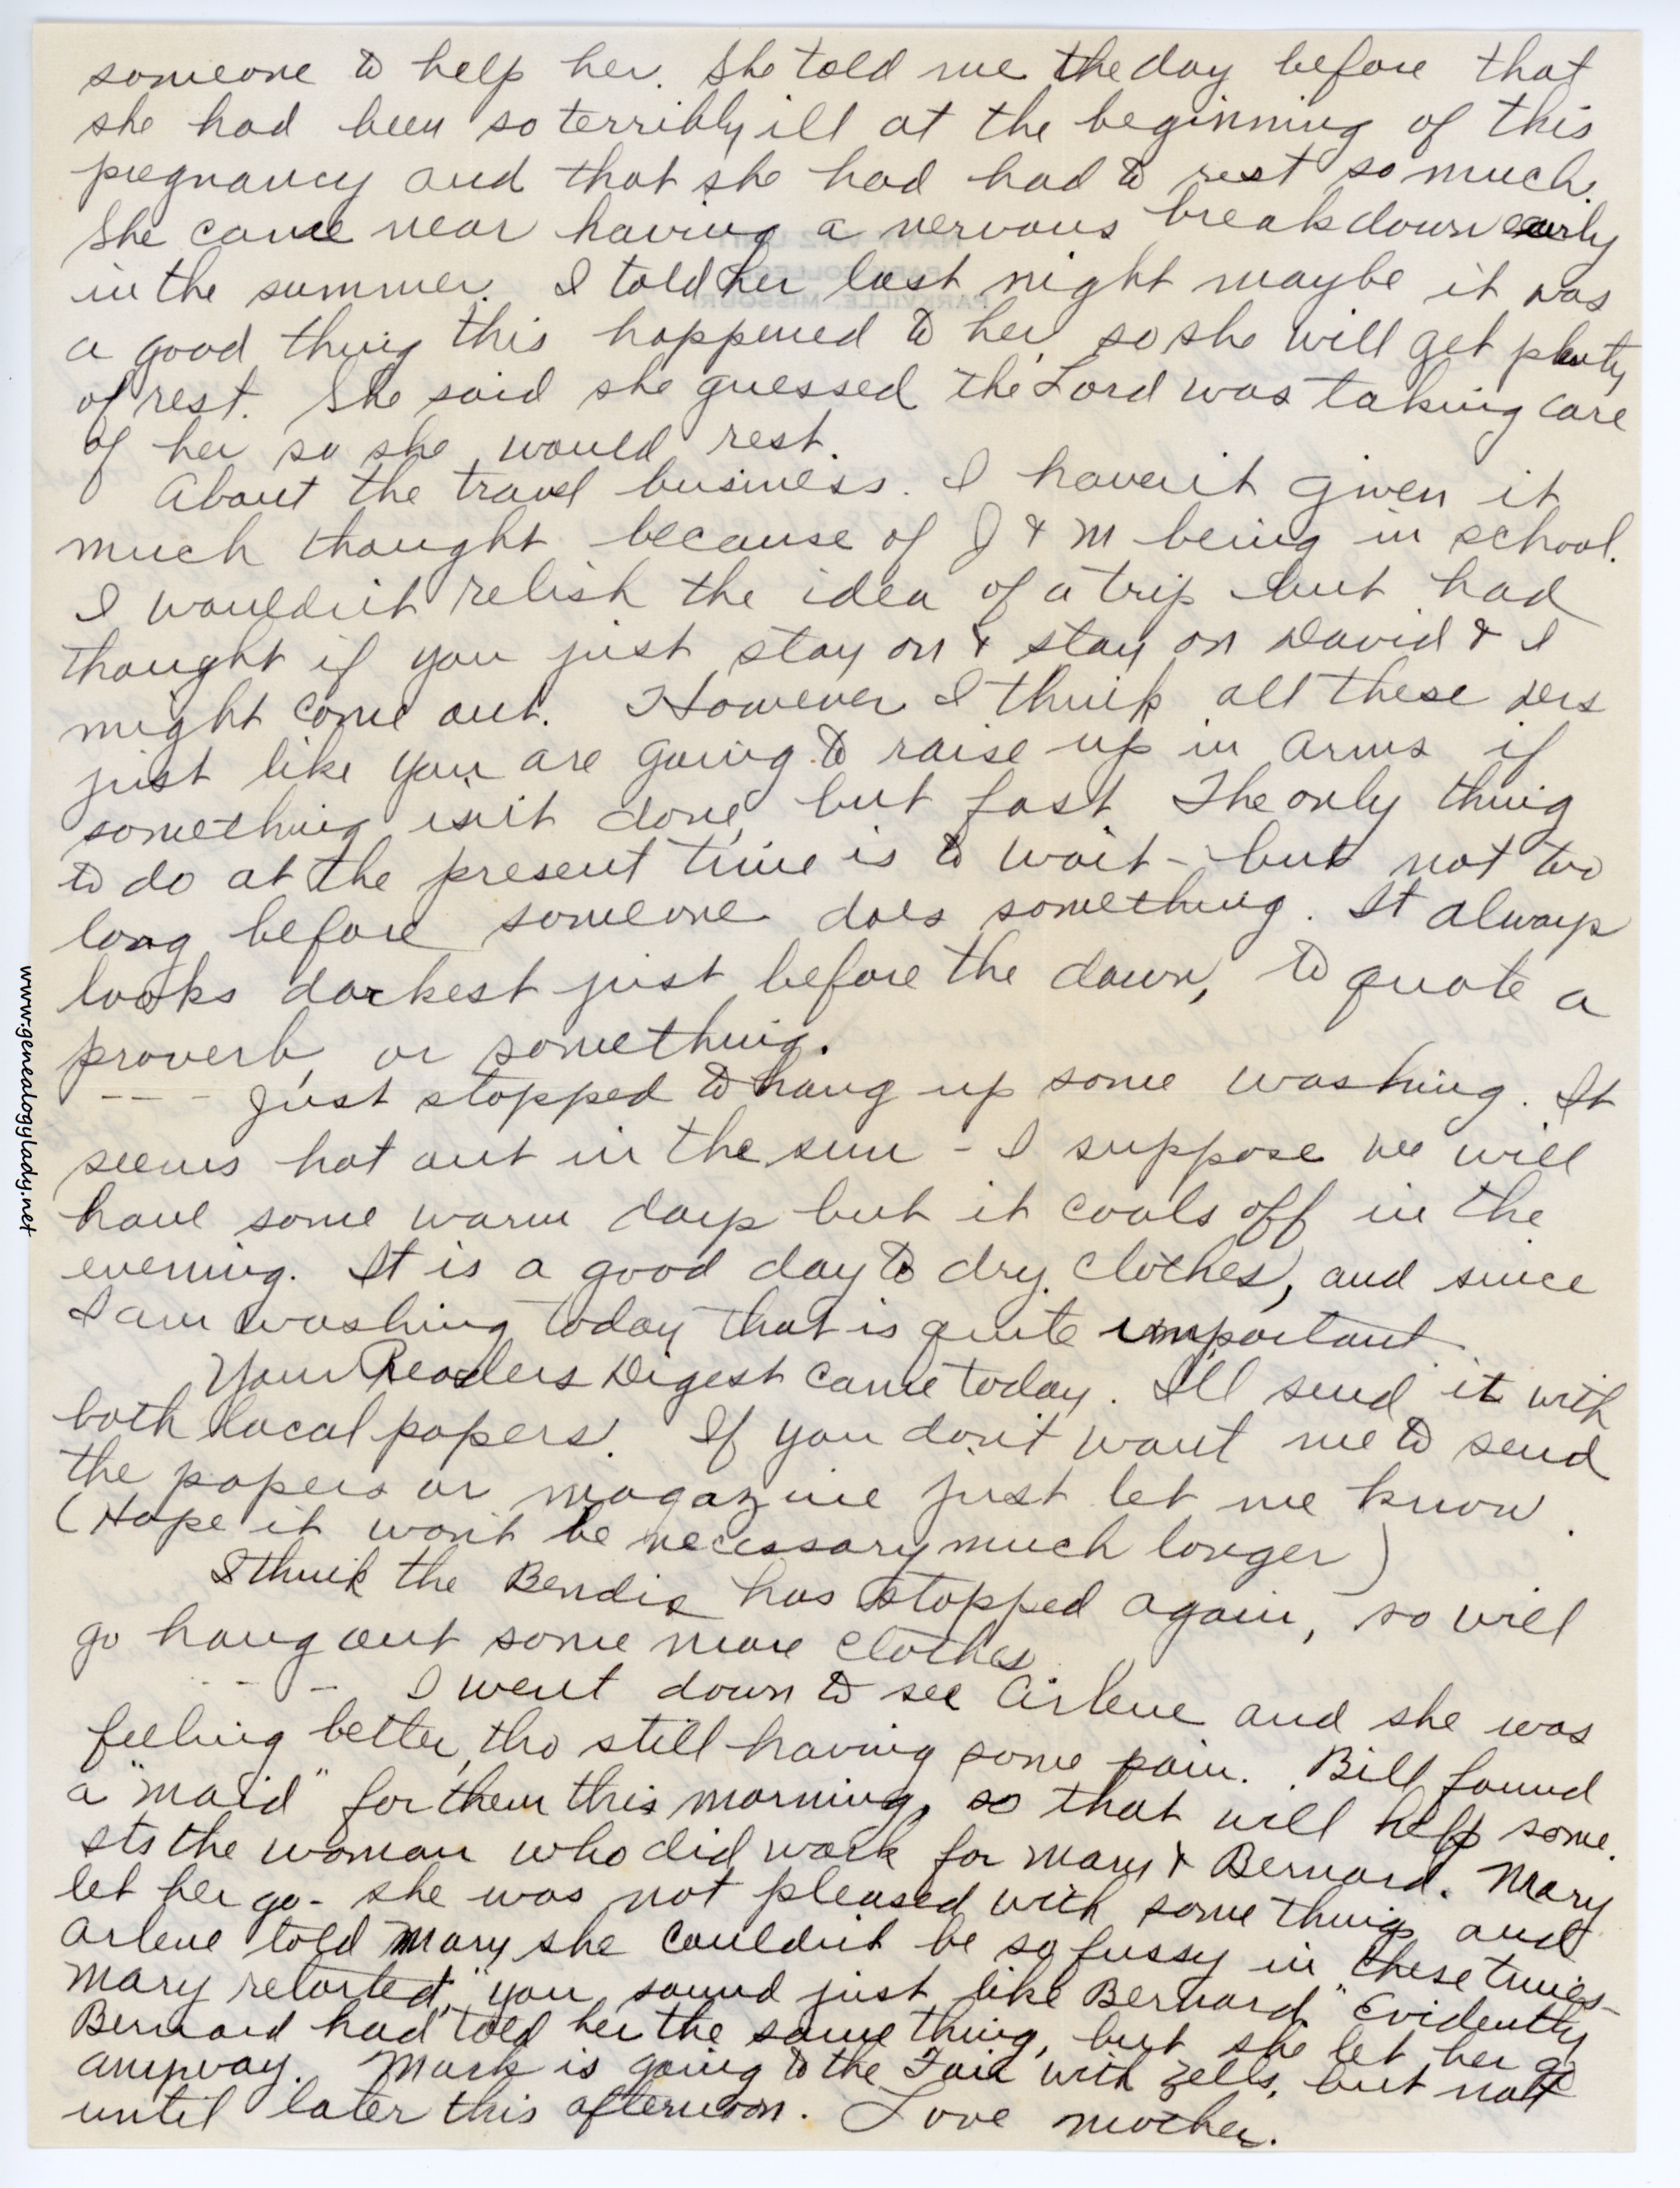 someone to help her. She told me the day before that
she had been so terribly ill at the beginning of this
pregnancy and that she had had to rest so much.
She came near having a nervous breakdown early
in the summer. I told her last night maybe it was
a good thing this happened to her, so she will get plenty
of rest. She said she guessed the Lord was taking care
of her so she would rest.
About the travel business. I haven't given it
much thought because of J & M being in school.
I wouldn't relish the idea of a trip but had
thought if you just stay on & stay on David & I
might come out. However I think all these
just like you are going to raise up in arms if
something isn't done, but fast. The only thing
to do at the present time is to wait - but not too
long before someone does something. It always
looks darkest just before the dawn, to quote a
proverb, or something.
- - - Just stopped to hang up some washing. It
seems hot out in the sun - I suppose we will
have some warm days but it cools off in the
evening. It is a good day to dry clothes, and since
I am washing today that is quite important.
Your Readers Digest came today. I'll send it with
both local papers. If you don't want me to send
the papers or magazine just let me know.
(Hope it won't be necessary much longer)
I think the Bendix has stopped again, so will
go hang out some more clothes.
- - - I went down to see Arlene and she was
feeling better, tho still having some pain. Bill found
a "maid" for them this morning, so that will help some.
Its the woman who did work for Mary & Bernard. Mary
let her go - she was not pleased with some things and
Arlene told Mary she couldn't be so fussy in these times -
Mary retorted, "you sound just like Bernard." Evidently
Bernard had told her the same thing, but she let her go
anyway. Mark is going to the Fair with Zells, but not
until later this afternoon. Love Mother.
PARKVILLE, MISSOURI
www.genealogylady.net